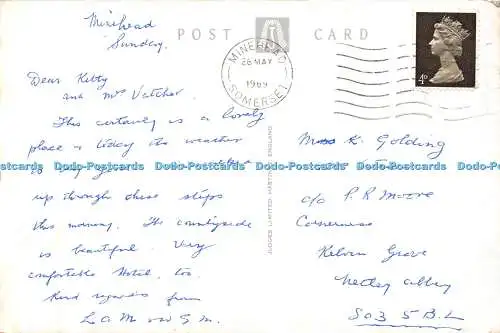 Minehead
Sunday.
POST CARD
MINEHEAD
26 MAY
1969
SOMERSET
4D
Dear Kitty
and Mrs Vatcher.
This certainly is a lovely
place & today the weather
is
up through these steps
this morning. The countryside
is beautiful. Very
comfortable Hotel, too.
Kind regards from
L.A.M and G.M.
JUDGES LIMITED HASTINGS ENGLAND
Miss K. Golding
c/o P. R Moore
Cornerness
Kelvin Grove
Netley Abbey
SO3 5BL
Dodo-Postcards Dodo-Postcards Dodo-Postcards Dodo-Postcards Dodo-Postcards